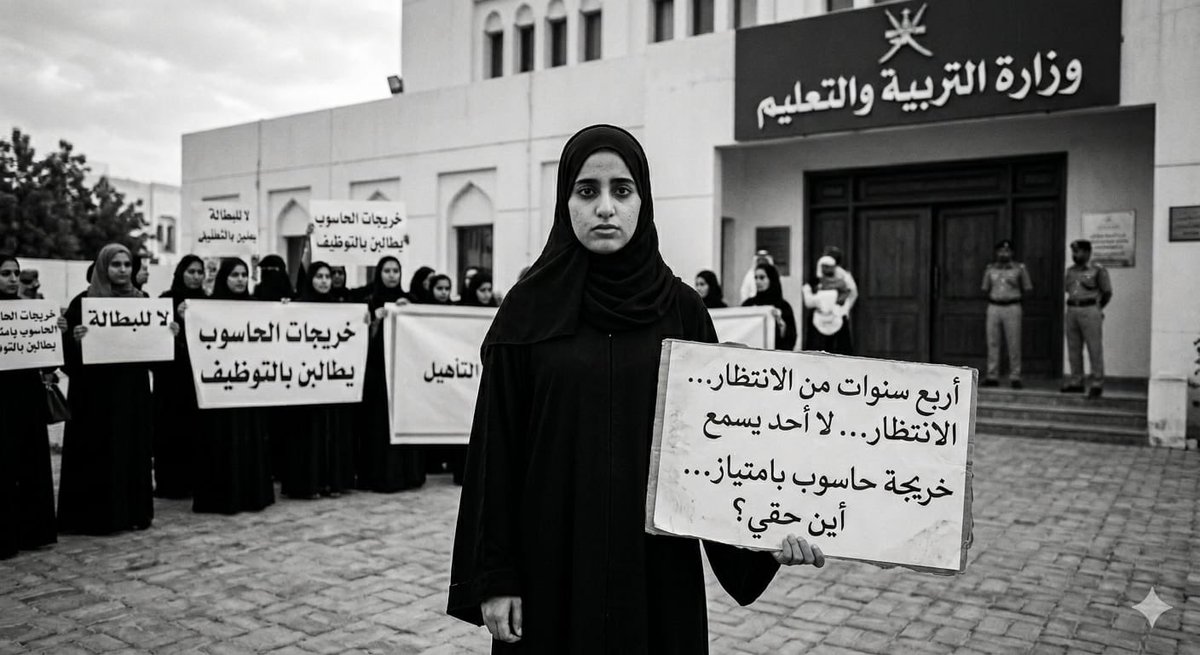 وزارة التربية والتعليم
لا للبطالة
يطلبن بالتظليف
خريجات الحاسوب
يطالبن بالتوظيف
خريجات الحاسوب
يطالبن بالتوظيف
لا للبطالة
خريجات الحاسوب
يطالبن بالتوظيف
التأهيل
أربع سنوات من الانتظار...
الانتظار... لا أحد يسمع
خريجة حاسوب بامتياز...
أين حقي؟